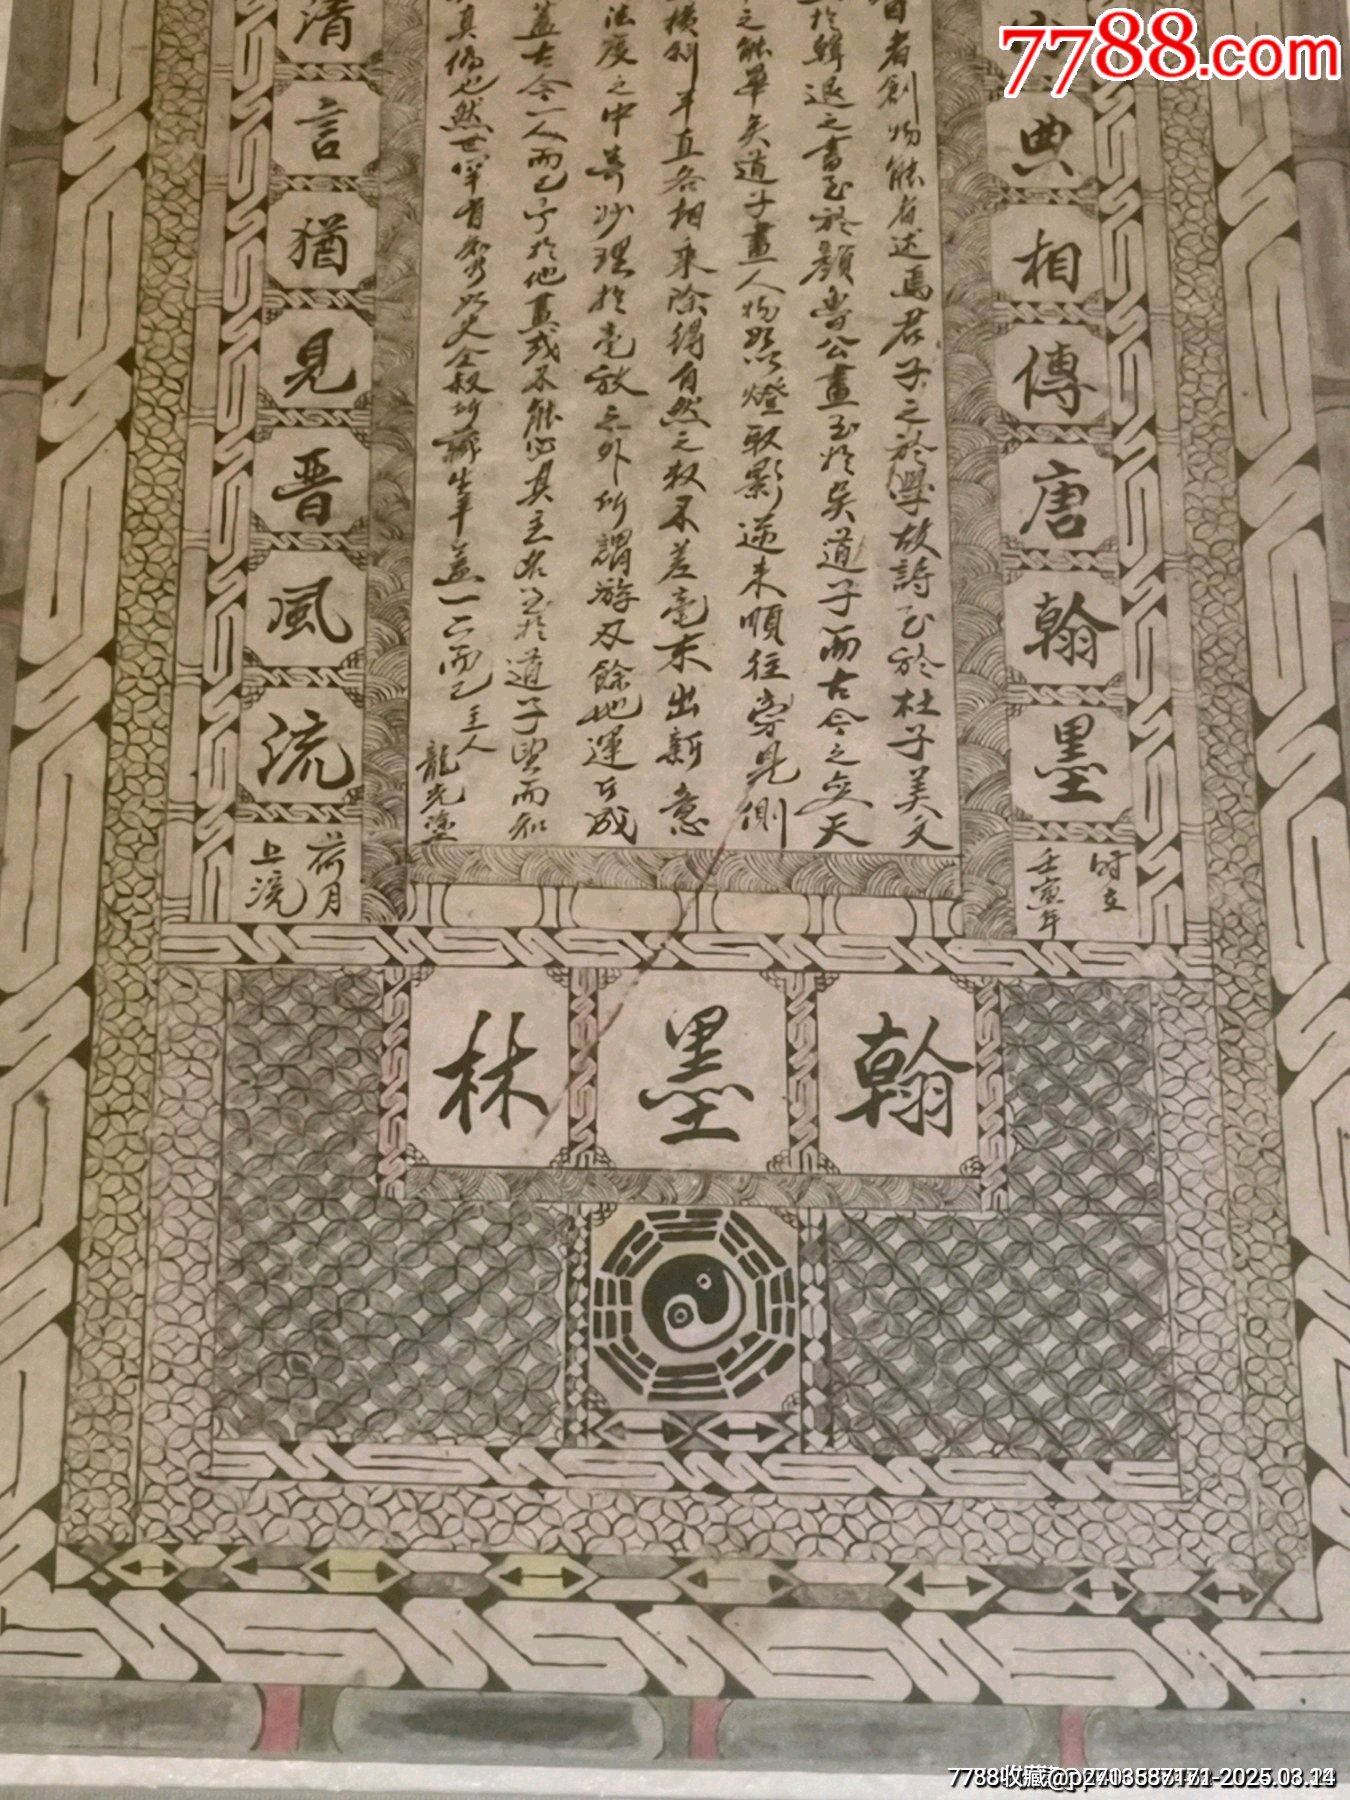 7788.com
典相傳唐翰墨
時立
壬寅年
者創物能者述焉君子之於學故詩至於杜子美文
於韓退之書至於顏魯公畫至於吳道子而古今之變天
之能畢矣道子畫人物照以燈取影逆來順往旁見側
橫斜平直各相乘除得自然之數不差毫末出新意
法度之中寄妙理於毫放之外所謂游刃餘地運斤成
蓋古今一人而已予於他畫或不能必其主名至於道子望而知
真偽也然世罕有如史全叔所藏生平蓋一二而已主人
龍光
清言猶見晋風流
荷月
上浣
翰墨林
7788收藏
2025.03.14